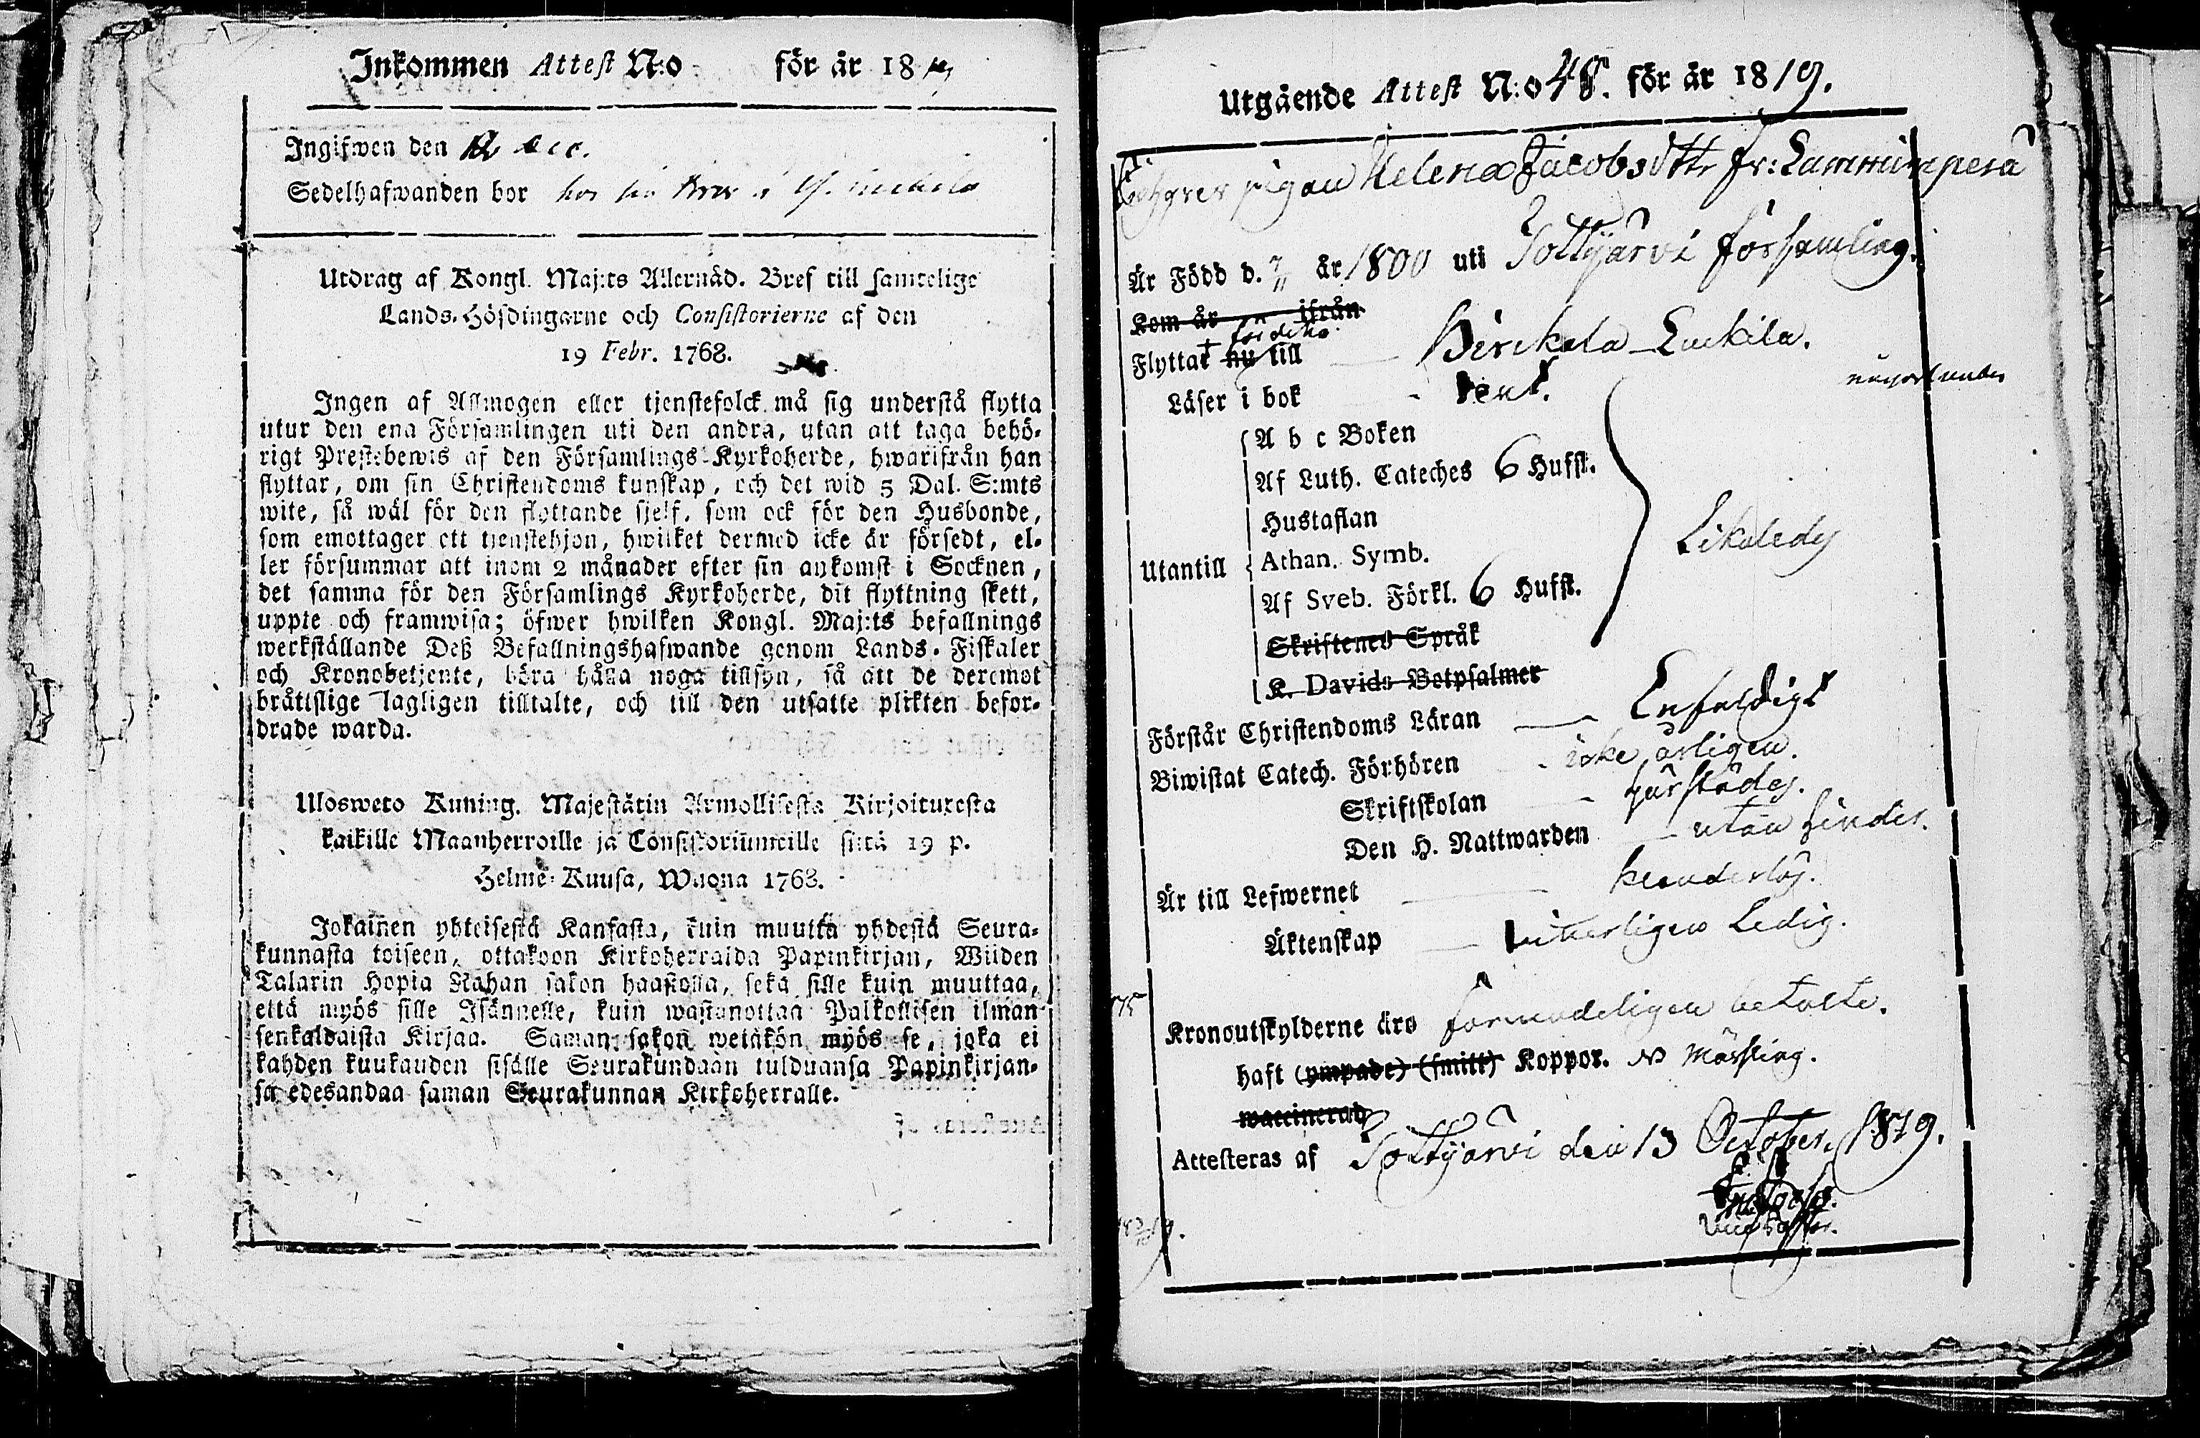 Inkommen Attest N:o för år 18
Ingifwen den
Sedelhafwanden bor hos sin
Utdrag af Kongl. Maj:ts Allernåd. Bref till samtelige
Lands-Höfdingarne och Consistorierne af den
19 Febr. 1768.
Ingen af Allmogen eller tjenstefolck må sig understå flytta
utur den ena Församlingen uti den andra, utan att taga behö-
rigt Prestebewis af den Församlings-Kyrkoherde, hwarifrån han
flyttar, om sin Christendoms kunskap, och det wid 5 Dal. S:mts
wite, så wäl för den flyttande sjelf, som ock för den Husbonde,
som emottager ett tjenstehjon, hwilket dermed icke är försedt, el-
ler försummar att inom 2 månader efter sin ankomst i Socknen,
det samma för den Församlings Kyrkoherde, dit flyttning skett,
uppte och framwisa; öfwer hwilken Kongl. Maj:ts befallnings
werkställande Deß Befallningshafwande genom Lands-Fiskaler
och Kronobetjente, böra hålla noga tillsyn, så att de deremot
bråttslige lagligen tilltalte, och till den utsatte plikten befor-
drade warda.
Ulosweto Kuning. Majestätin Armollisesta Kirjoituxesta
kaikille Maanherroille ja Consistoriumeille siitä 19 p.
Helme-Kuusa, Wuona 1768.
Jokainen yhteisestä Kanfasta, kuin muutta yhdestä Seura-
kunnasta toiseen, ottakoon Kirkoherralda Papinkirjan, Wiiden
Talarin Hopia Rahan sakon haastolla, sekä sille kuin muuttaa,
että myös sille Isännelle, kuin wastanottaa Palkollisen ilman
senkaldaista Kirjaa. Saman sakon wetäkön myös se, joka ei
kahden kuukauden sisälle Seurakundaan tulduansa Papinkirjan-
sa edesandaa saman Seurakunnan Kirkoherralle.
Utgående Attest N:o 48. för år 1819.
pigan Helena Jacobsdttr fr: Lammimperä
Är Född d. 7/11 år 1800 uti Sottjärvi församling.
Kom år ifrån
Flyttar nu till Birckala Luckila.
Läser i bok rent.
Utantill
A b c Boken
Af Luth. Cateches 6 Hufst.
Hustaflan
Athan. Symb.
Af Sveb. Förkl. 6 Hufst.
Skriftenes Språk
K. Davids Botpsalmer
Likaledes
Förstår Christendoms Läran Enfaldigt
Biwistat Catech. Förhören icke årligen.
Skriftskolan härstädes.
Den H. Nattwarden utan hinder.
Är till Lefwernet klanderlös.
Äktenskap Ledig.
Kronoutskylderne äro förmodeligen betalte.
haft (ympade) (smitt) Koppor. Mässling.
waccinerad
Attesteras af Sottjärvi den 13 October 1819.